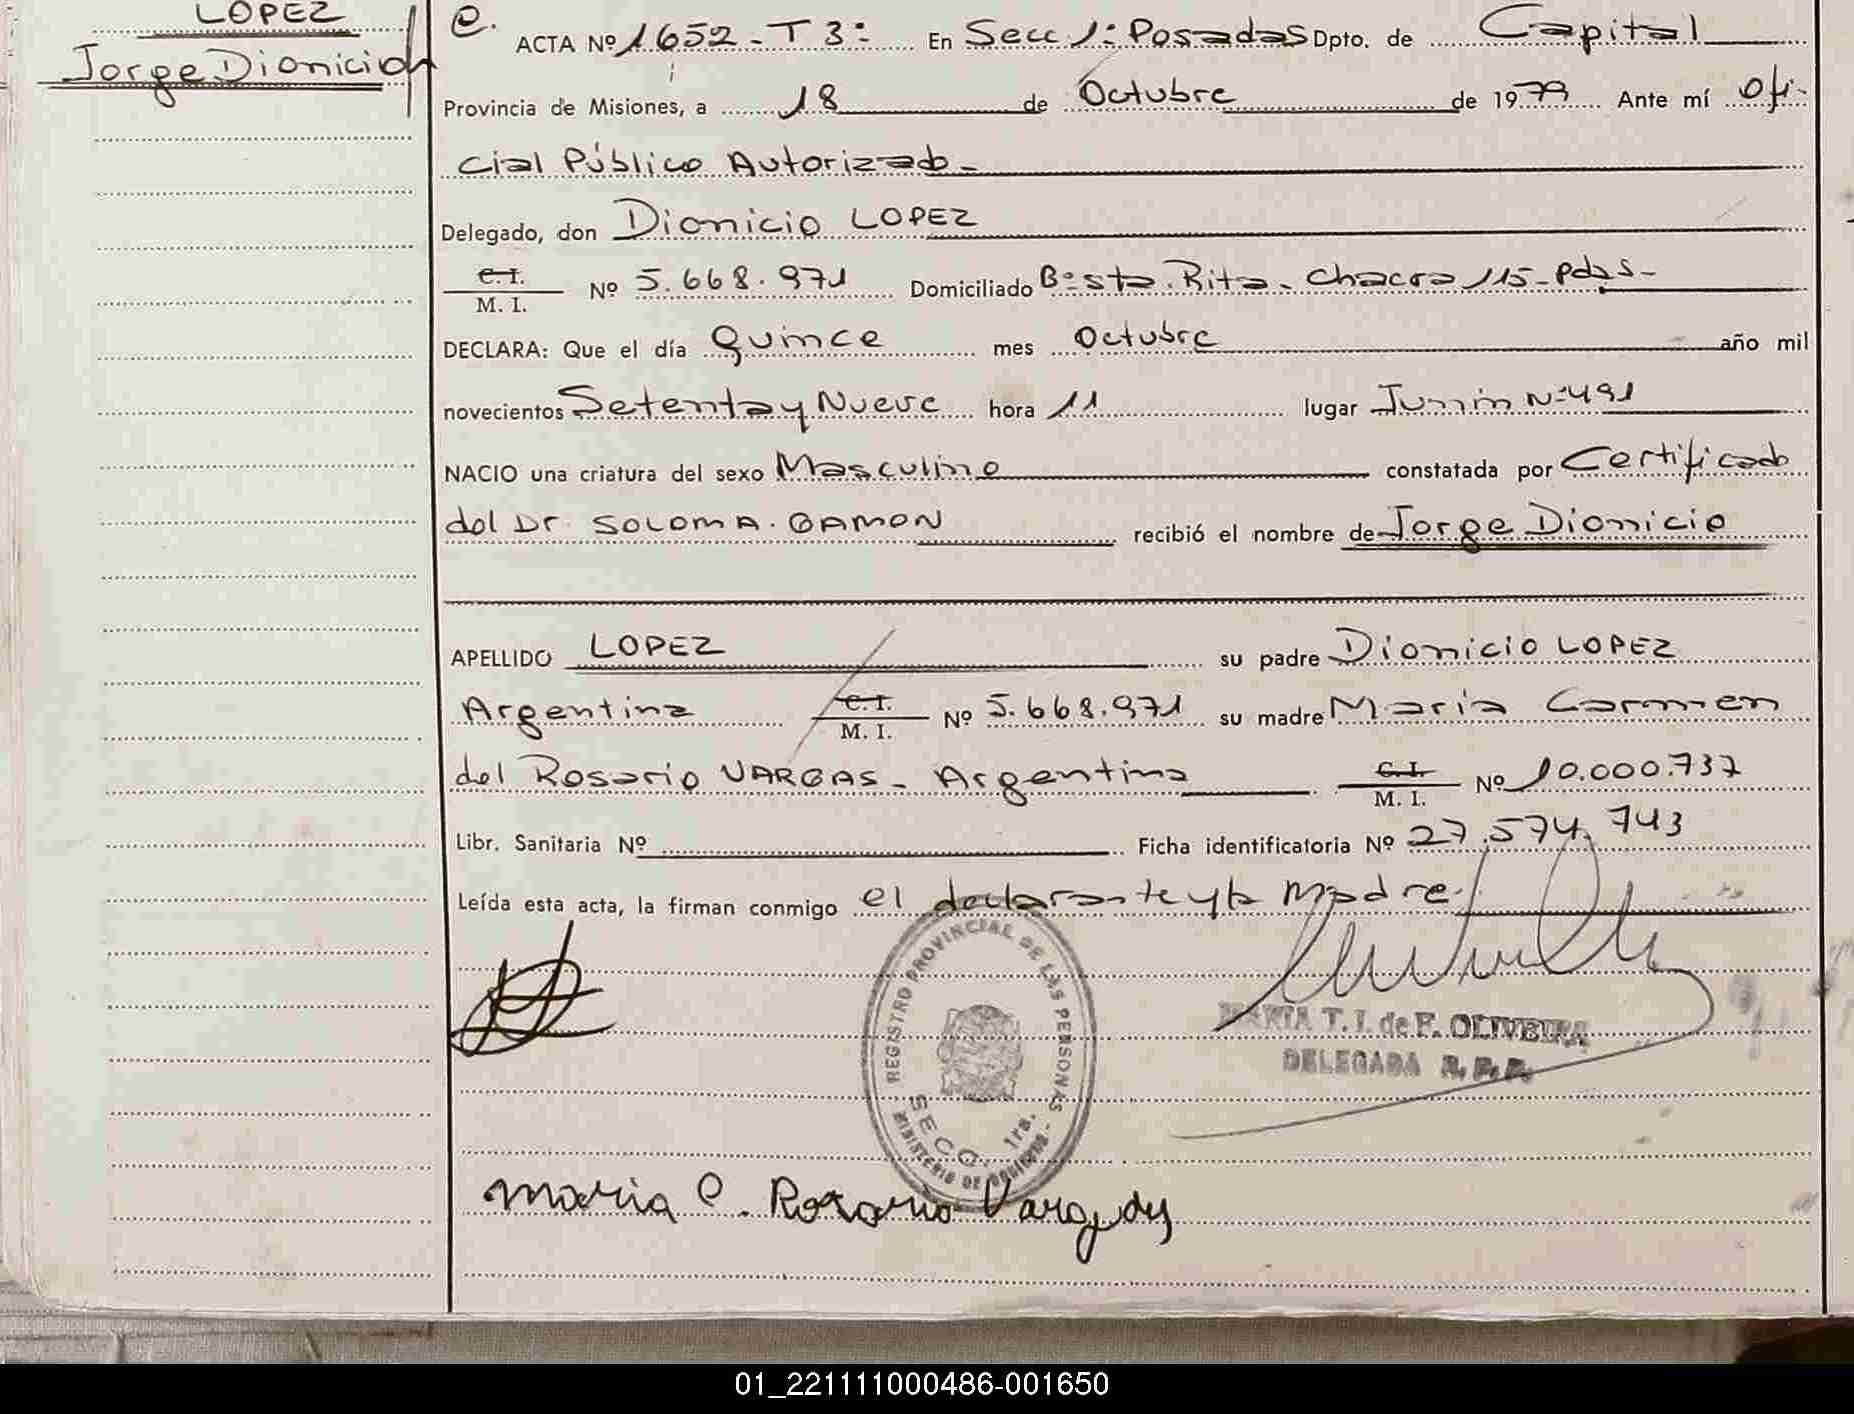 LOPEZ
Jorge Dionicio
e.
ACTA Nº 1652 - T 3º En Secc 1º Posadas Dpto. de Capital
Provincia de Misiones, a 18 de Octubre de 1979 Ante mí Ofi-
cial Público Autorizado -
Delegado, don Dionicio LOPEZ
C.I.
M. I. Nº 5.668.971 Domiciliado Bº Sta. Rita - Chacra 115 - Pdas -
DECLARA: Que el día Quince mes Octubre año mil
novecientos Setenta y Nueve hora 11 lugar Junin Nº 491
NACIO una criatura del sexo Masculino constatada por Certificado
del Dr. SOLOMA. GAMON recibió el nombre de Jorge Dionicio
APELLIDO LOPEZ su padre Dionicio LOPEZ
Argentina C.I. M. I. Nº 5.668.971 su madre Maria Carmen
del Rosario VARGAS - Argentina C.I. M. I. Nº 10.000.737
Libr. Sanitaria Nº Ficha identificatoria Nº 27.574.743
Leída esta acta, la firman conmigo el declarante y la Madre -
REGISTRO PROVINCIAL DE LAS PERSONAS
SECC. 1ra.
MINISTERIO DE
MARTA T. I. de F. OLIVEIRA
DELEGADA R. P. P.
Maria C. Rosario Vargas
01_221111000486-001650